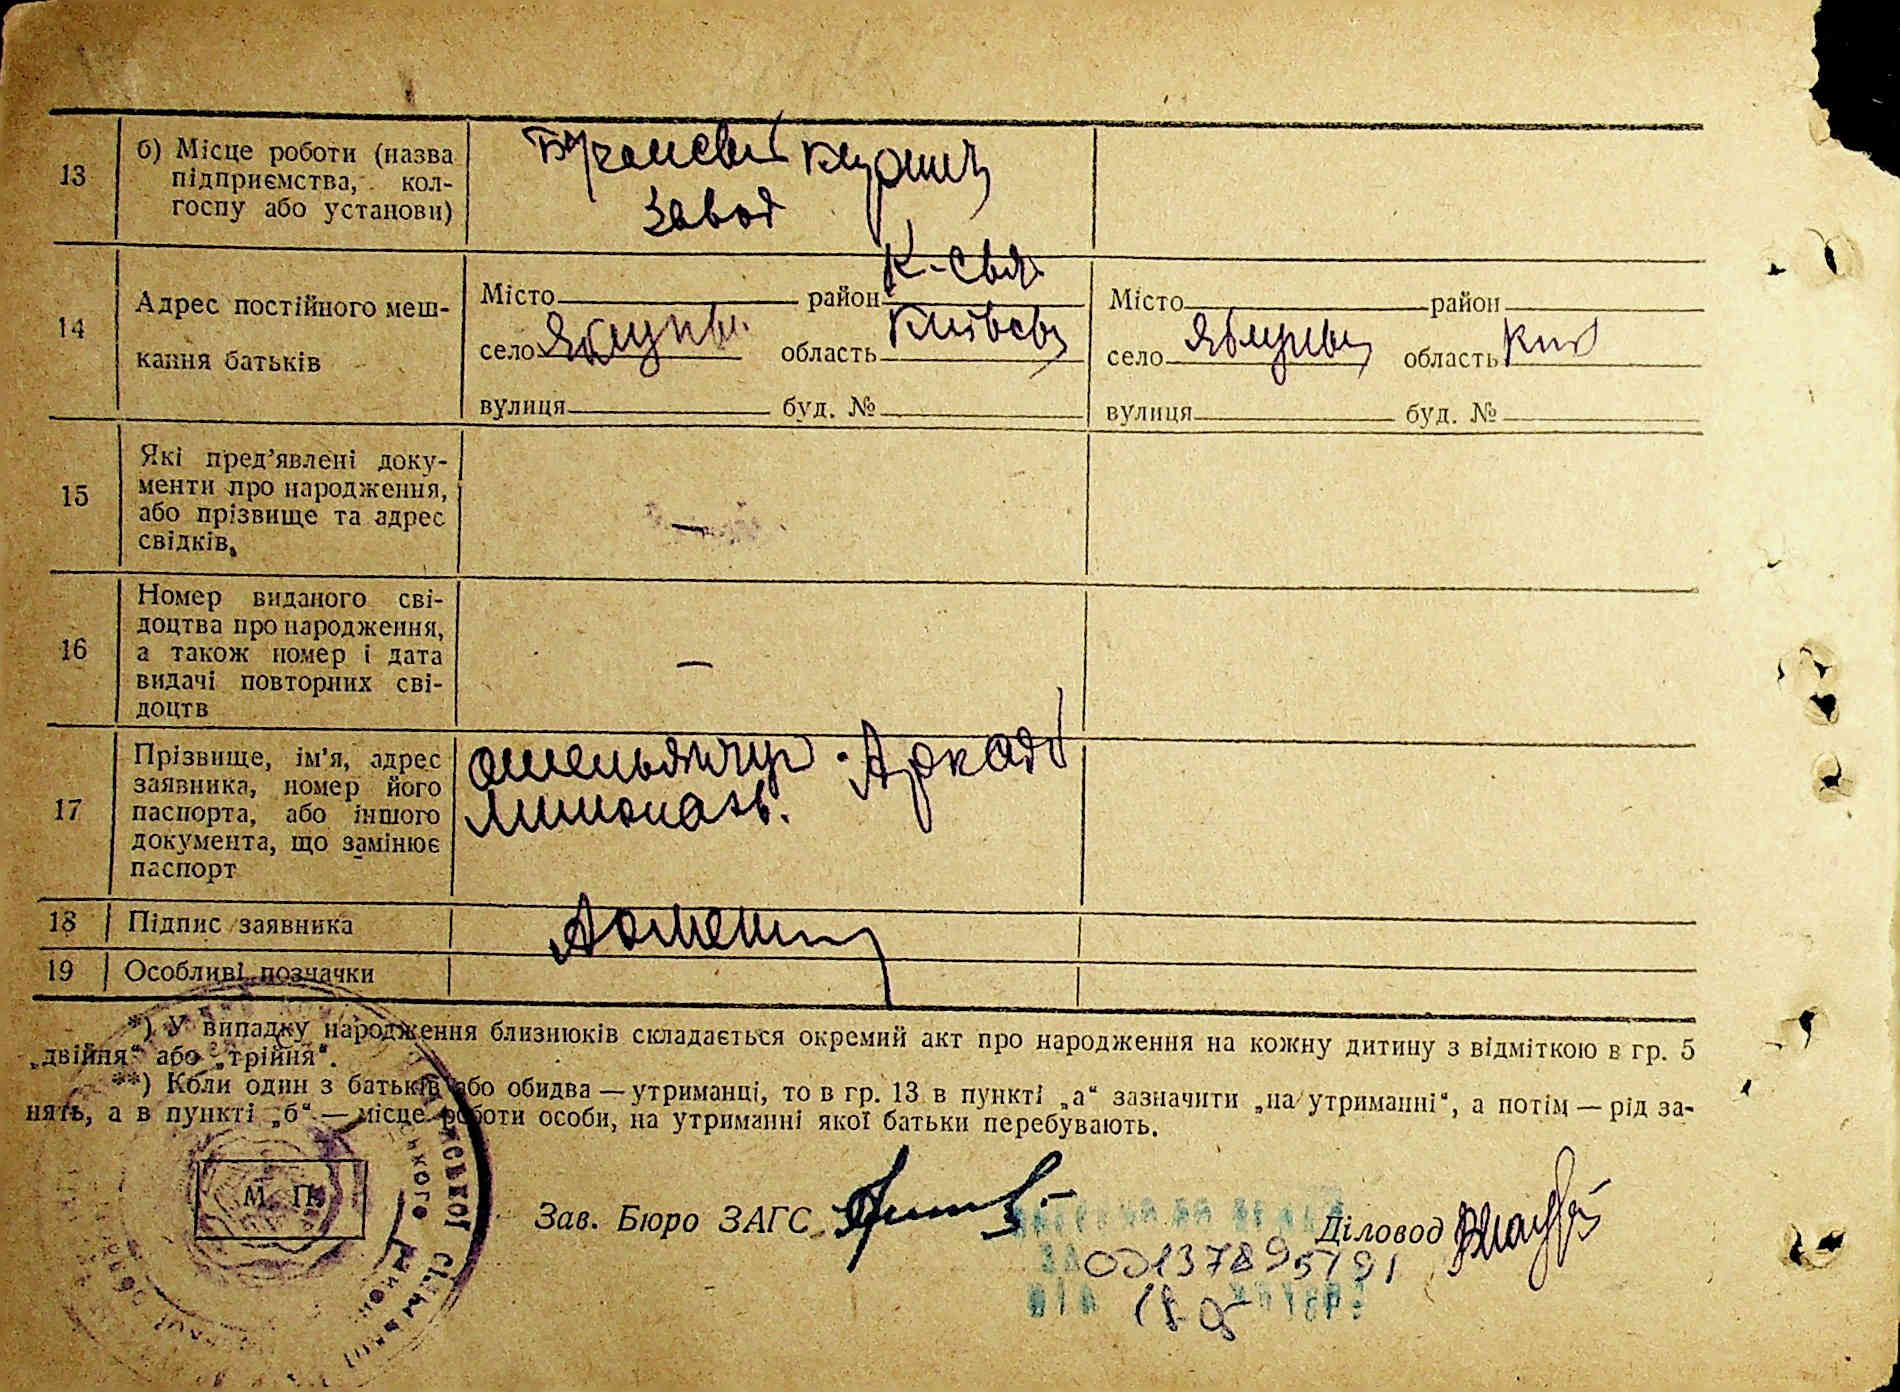 13
б) Місце роботи (назва
підприємства, кол-
госпу або установи)
завод
14
Адрес постійного меш-
кання батьків
Місто район К-Свят
село область Київськ
вулиця буд. №
Місто район
село область Киів
вулиця буд. №
15
Які пред'явлені доку-
менти про народження,
або прізвище та адрес
свідків,
—
16
Номер виданого сві-
доцтва про народження,
а також номер і дата
видачі повторних сві-
доцтв
—
17
Прізвище, ім'я, адрес
заявника, номер його
паспорта, або іншого
документа, що замінює
паспорт
Омельянчук Аркадій
18 Підпис заявника
19 Особливі позначки
*) У випадку народження близнюків складається окремий акт про народження на кожну дитину з відміткою в гр. 5
„двійня“ або „трійня“.
**) Коли один з батьків або обидва — утриманці, то в гр. 13 в пункті „а“ зазначити „на утриманні“, а потім — рід за-
нять, а в пункті „б“ — місце роботи особи, на утриманні якої батьки перебувають.
М. П.
Зав. Бюро ЗАГС
Діловод